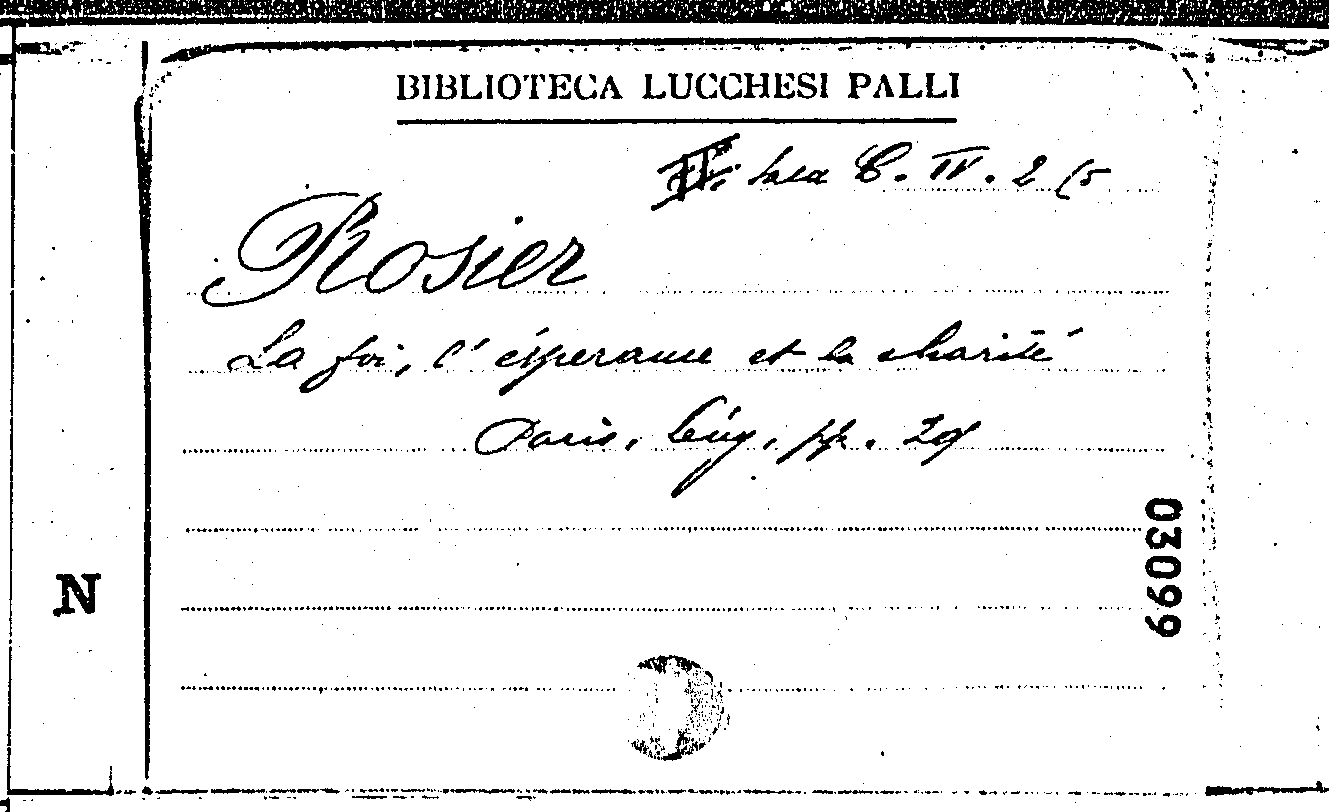 BIBLIOTECA LUCCHESI PALLI
II. Sala C. IV. 2 (5
Rosier
La foi, l'ésperance et la charité
Paris, Lévy, pp. 29
03099
N